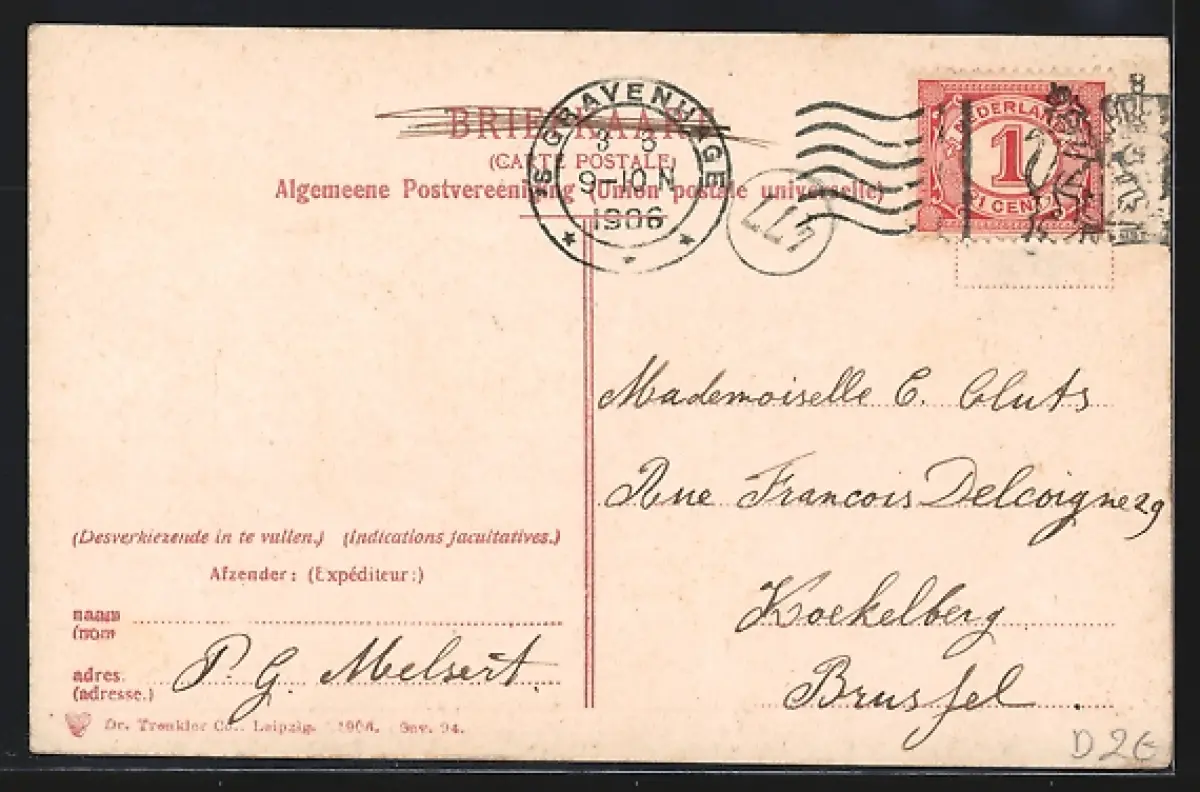 BRIEFKAART
(CARTE POSTALE)
Algemeene Postvereeniging (Union postale universelle)
'S GRAVENHAGE
3-8
9-10 N
1906
477
NEDERLAND
1
CENT
Mademoiselle E. Cluts
Rue Francois Delcoigne 29
Koekelberg
Brussel.
(Desverkiezende in te vullen.) (Indications facultatives.)
Afzender: (Expéditeur:)
naam
(nom
P. G. Melsert.
adres.
(adresse.)
Dr. Trenkler Co., Leipzig. 1906. Gav. 94.
D2G